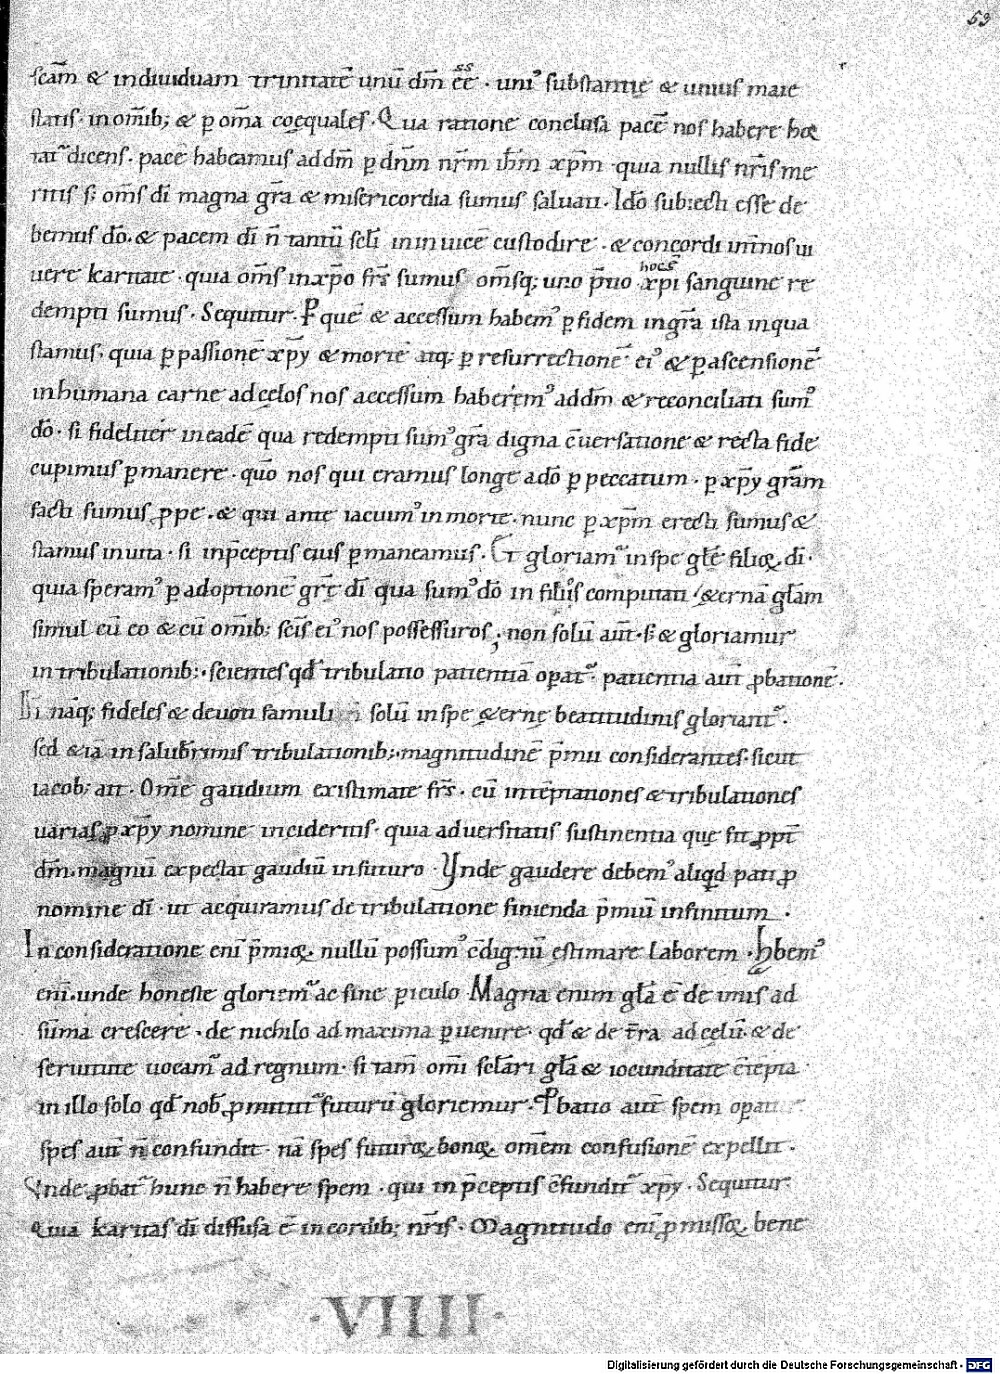 53
scam̄ & indiuiduam trinitatē unū dm̄ ēē · uni᾽ substantię & unius maie
statis · in om̄ib; & ꝑ om̄a coęquales · Qua ratione conclusa pacē nos habere hoc
tat᷑ dicens · pacē habeamus ad dm̄ ꝑ dnm̄ nr̄m ihm̄ xp̄m · quia nullis nr̄is me
ritis s; om̄s dī magna gr̄a & misericordia sumus saluati · Ido᷑ subiecti esse de
bemus dō · & pacem dī n̄ tantū scł̄i inin uicē custodire · & concordi int̄ nos ui
uere karitate · quia om̄s in xp̄o frs̄ sumus om̄sq; uno p̄tio · hoc ē xp̄i sanguine re
dempti sumus · Sequitur · P quē & accessum habem᾽ ꝑ fidem in gr̄a ista in qua
stamus; quia ꝑ passionē xp̄y & mortē atq; ꝑ resurrectionē ei᾽ & ꝑ ascensionē
in humana carne ad cęlos nos accessum haberem᾽ ad dm̄ & reconciliati sum᾽
dō · si fidelit̄ in eadē qua redempti sum᾽ gr̄a digna c̄uersatione & recta fide
cupimus ꝑmanere · quō nos qui eramus longe a dō ꝑ peccatum · ꝑ xp̄y gr̄am
facti sumus ꝓpe · & qui ante iacuim᾽ in morte · nunc ꝑ xp̄m erecti sumus &
stamus in uita · si in p̄ceptis eius ꝑmaneamus · Et gloriam᷑ in spe glē filioꝝ dī ·
quia speram᾽ ꝑ adoptionē gr̄ę dī qua sum᾽ dō in filiis computati · &ernā glām
simul cū eo & cū om̄ib; scīs ei᾽ nos possessuros; non solū aut̄ · s; & gloriamur
in tribulationib; · scientes qd̄ tribulatio patientiā oꝑat᷑ · patientia aut̄ ꝓbationē ·
Hi nāq; fideles & deuoti famuli n̄ solū in spe &ernę beatitudinis gloriant᷑ ·
sed &iā in salubr̄imis tribulationib; · magnitudinē p̄mii considerantes · sicut
iacob; ait · Om̄e gaudium existimate frs̄ · cū in tēptationes & tribulationes
uarias ꝓ xp̄y nomine incideritis · quia aduersitatis sustinentia quę fit ꝓpt̄
dm̄ · magnū expectat gaudiū in futuro · Vnde gaudere debem᾽ aliqd̄ pati ꝓ
nomine dī · ut acquiramus de tribulatione finienda p̄miū infinitum ·
In consideratione enī p̄mioꝝ · nullū possum᾽ c̄dignū estimare laborem · Hbem᾽
enī · unde honeste gloriem᷑ ac sine ꝑiculo Magna enim glā ē de imis ad
sūma crescere · de nichilo ad maxima ꝑuenire · qd̄ & de t̄ra ad cęlū · & de
seruitute uocam᷑ ad regnum · si tam̄ omī sclāri glā & iocunditate c̄tēpta ·
in illo solo qd̄ nob̄ ꝓmittit᷑ futurū gloriemur · Pbatio aut̄ spem oꝑatur
spes aut̄ n̄ confundit · nā spes futuroꝝ bonoꝝ · omēm confusionē expellit ·
Vnde ꝓbat᷑ hunc n̄ habere spem · qui in p̄ceptis c̄fundit᷑ xp̄y · Sequitur
Quia karitas dī diffusa ē in cordib; nr̄is · Magnitudo enī ꝓmissoꝝ bene
· VIIII ·
Digitalisierung gefördert durch die Deutsche Forschungsgemeinschaft · DFG